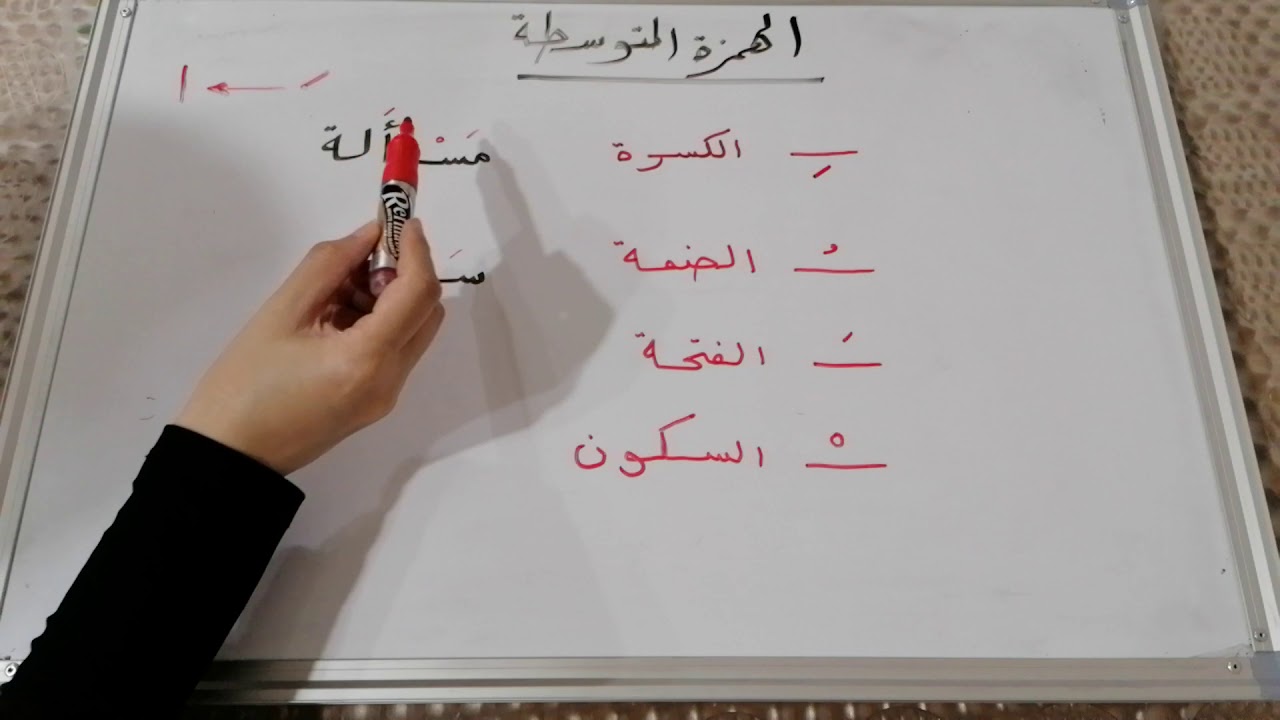 الهمزة المتوسطة
َ ← ا
ـِـ الكسرة
مَسْأَلة
ـُـ الضمة
ـَـ الفتحة
ـْـ السكون